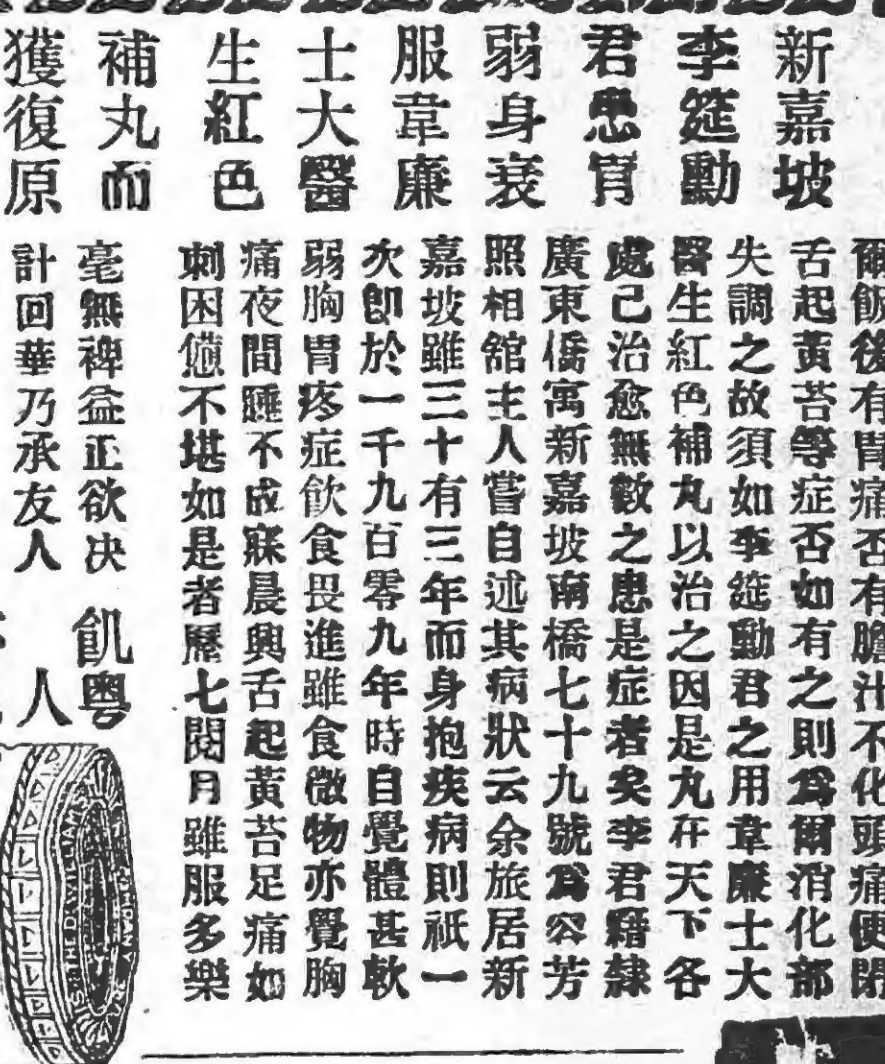 新嘉坡
李筵勳
君患胃
弱身衰
服韋廉
士大醫
生紅色
補丸而
獲復原
爾飯後有胃痛否有膽汁不化頭痛便閉
舌起黃苔等症否如有之則爲爾消化部
失調之故須如李筵勳君之用韋廉士大
醫生紅色補丸以治之因是丸在天下各
處已治愈無數之患是症者矣李君籍隸
廣東僑寓新嘉坡南橋七十九號爲容芳
照相舘主人嘗自述其病狀云余旅居新
嘉坡雖三十有三年而身抱疾病則祇一
次卽於一千九百零九年時自覺體甚軟
弱胸胃疼症飲食畏進雖食微物亦覺胸
痛夜間睡不成寐晨興舌起黃苔足痛如
刺困憊不堪如是者歷七閱月雖服多藥
毫無裨益正欲决
計回華乃承友人
飢粵
人